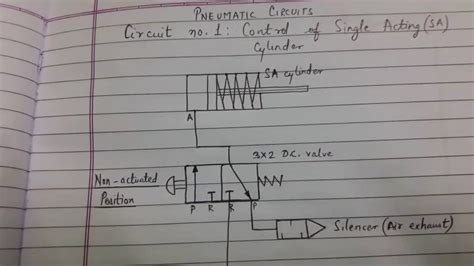 PNEUMATIC CIRCUITS
Circuit no.1: Control of Single Acting (SA)
Cylinder
SA cylinder
A
3x2 D.C. valve
Non-actuated
Position
P R R P
Silencer (Air exhaust)